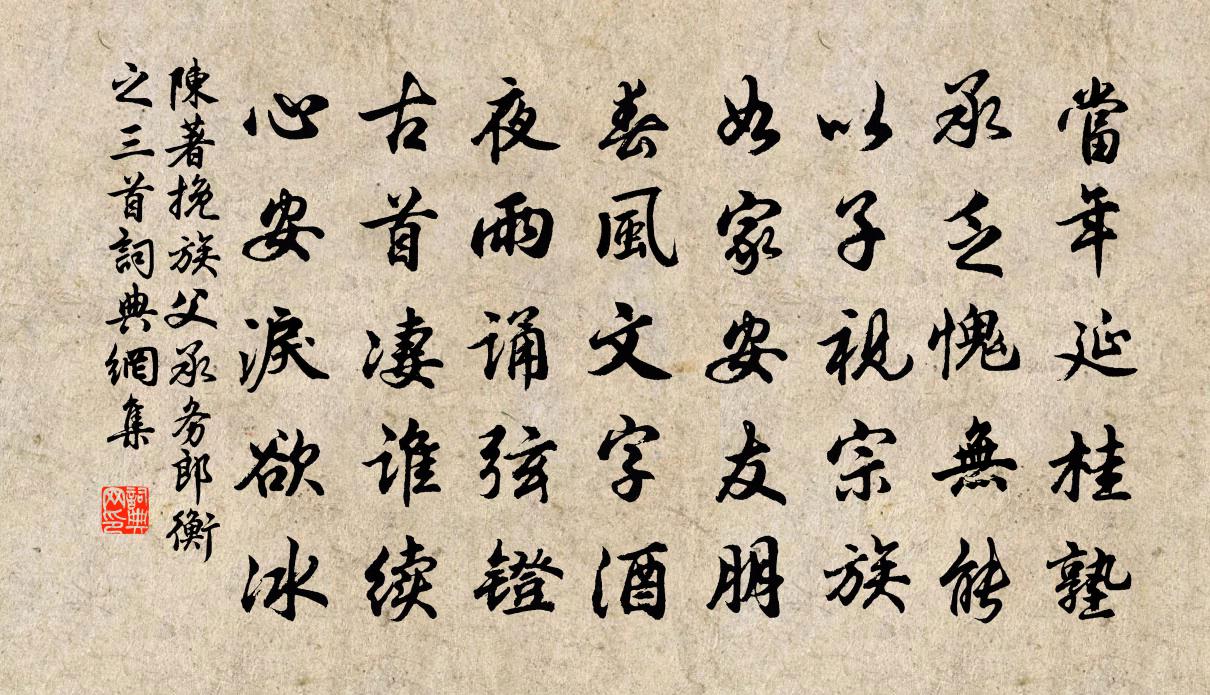 當年延桂塾
承乏愧無能
以子視宗族
如家安友朋
春風文字酒
夜雨诵弦镫
古首凄谁续
心安淚欲冰
陳著挽族父承务郎衡
之三首詞典網集
詞典网印